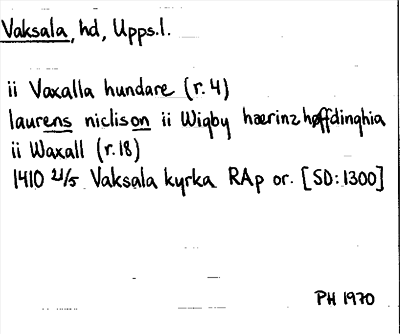 Vaksala, hd, Upps.l.
ii Vaxalla hundare (r.4)
laurens niclison ii Wigby hærinz høffdinghia
ii Waxall (r.18)
1410 21/5 Vaksala kyrka RAp or. [SD:1300]
PH 1970